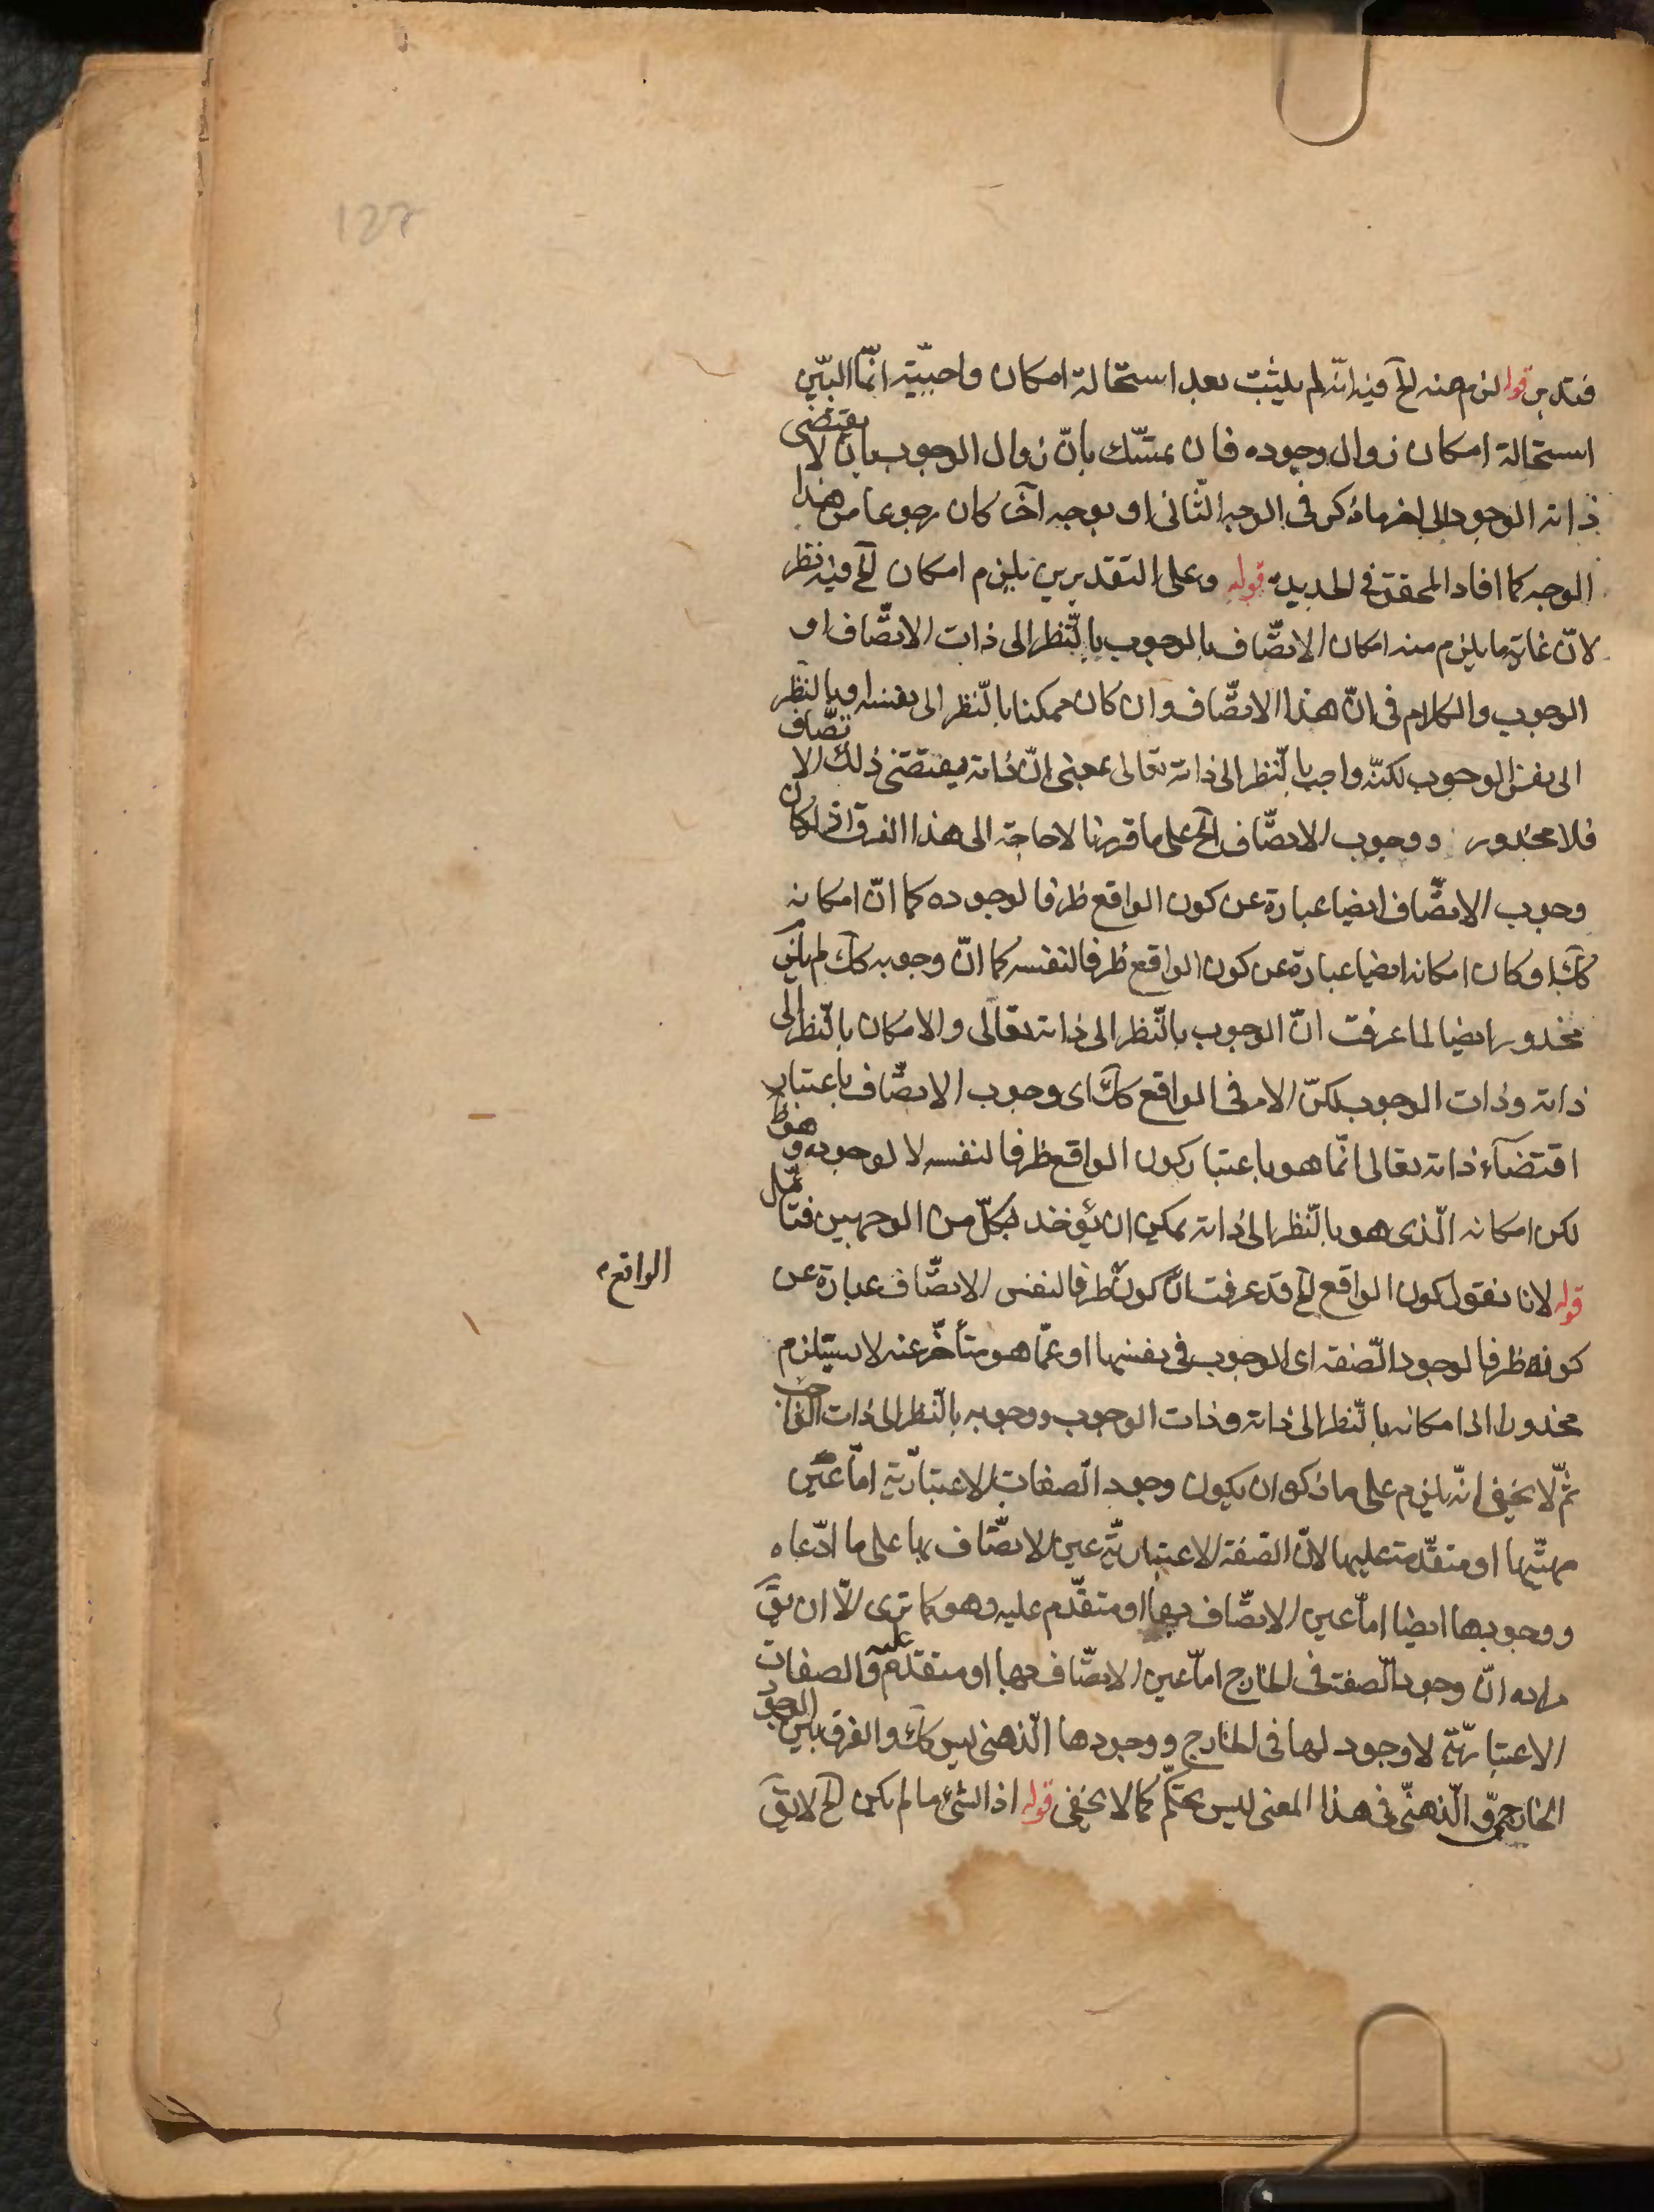 127
فتدبر قوله لزم منه الخ فيه انه لم يثبت بعد استحالة امكان واجبيته انما البين
استحالة امكان زوال وجوده فان تمسك بان زوال الوجوب بان لا يقتضى
ذاته الوجود الى اخر ما ذكر فى الوجه الثانى او بوجه آخر كان رجوعا من هذا
الوجه كما افاد المحقق فى الجديدة قوله وعلى التقديرين يلزم امكان الخ فيه نظر
لان غاية ما يلزم منه امكان الاتصاف بالوجوب بالنظر الى ذات الاتصاف او
الوجوب والكلام فى ان هذا الاتصاف وان كان ممكنا بالنظر الى نفسه او بالنظر
الى نفس الوجوب لكنه واجب بالنظر الى ذاته تعالى بمعنى ان ذاته يقتضى ذلك الاتصاف
فلا محذور ووجوب الاتصاف الخ على ما قررنا لا حاجة الى هذا الفرق اذ لو كان
وجوب الاتصاف ايضا عبارة عن كون الواقع ظرفا لوجوده كما ان امكانه
كك او كان امكانه ايضا عبارة عن كون الواقع ظرفا لنفسه كما ان وجوبه كك لم يلزم
محذور ايضا لما عرفت ان الوجوب بالنظر الى ذاته تعالى والامكان بالنظر الى
ذاته وذات الوجوب لكن الامر فى الواقع كك اى وجوب الاتصاف باعتبار
اقتضآء ذاته تعالى انما هو باعتبار كون الواقع ظرفا لنفسه لا لوجوده وهو ظ
لكن امكانه الذى هو بالنظر الى ذاته يمكن ان يؤخذ بكل من الوجهين فتأمل
قوله لانا نقول كون الواقع الخ قد عرفت ان كون ظرفا لنفس الاتصاف عبارة عن
الواقع
كونه ظرفا لوجود الصفة اى الوجوب فى نفسها او عما هو متأخر عنه لا يستلزم
محذورا اذ امكانه بالنظر الى ذاته وذات الوجوب ووجوبه بالنظر الى ذات الواجب
ثم لا يخفى انه يلزم على ما ذكره ان يكون وجود الصفات الاعتبارية اما عين
مهيتها او متقدمة عليها لان الصفة الاعتبارية عين الاتصاف بها على ما ادعاه
ووجودها ايضا اما عين الاتصاف بها او متقدم عليه وهو كما ترى الا ان يق
مراده ان وجود الصفة فى الخارج اما عين الاتصاف بها او متقدم عليه والصفات
الاعتبارية لا وجود لها فى الخارج ووجودها الذهنى ليس كك والفرق بين الوجود
الخارجى والذهنى فى هذا المعنى ليس بحكم كما لا يخفى قوله اذ الشئ ما لم يكن الخ لا يق